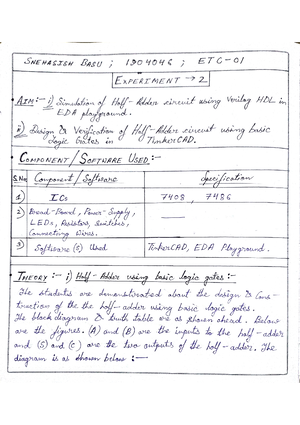 SNEHASISH BASU ; 1304046 ; ETC-01
EXPERIMENT → 2
AIM:- i) Simulation of Half-Adder circuit using Verilog HDL in
EDA playground.
ii) Design & Verification of Half-Adder circuit using basic
logic Gates in TinkerCAD.
COMPONENT/SOFTWARE USED:-
S.No Component/Software Specification
1) ICs 7408, 7486
2) Bread-Board, Power-Supply,
LEDs, Resistors, Switches,
Connecting Wires.
3) Software(s) Used TinkerCAD, EDA Playground.
THEORY:- i) Half-Adder using basic logic gates:-
The students are demonstrated about the design & Cons-
truction of the the half-adder using basic logic gates.
The block diagram & truth table are as shown ahead. Below
are the figures. (A) and (B) are the inputs to the half-adder
and (S) and (C) are the two outputs of the half-adder. The
diagram is as shown below :—